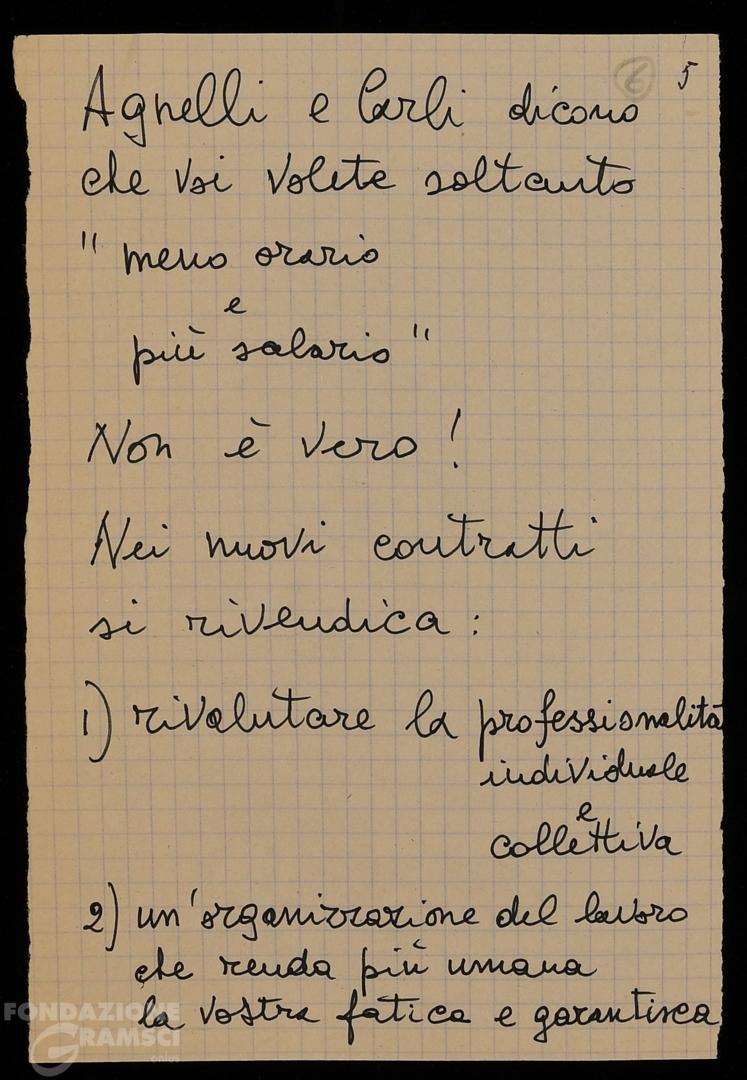 6 5
Agnelli e Carli dicono
che voi volete soltanto
" meno orario
e
più salario "
Non è vero !
Nei nuovi contratti
si rivendica :
1) rivalutare la professionalità
individuale
e
collettiva
2) un'organizzazione del lavoro
che renda più umana
la vostra fatica e garantisca
FONDAZIONE
GRAMSCI
onlus